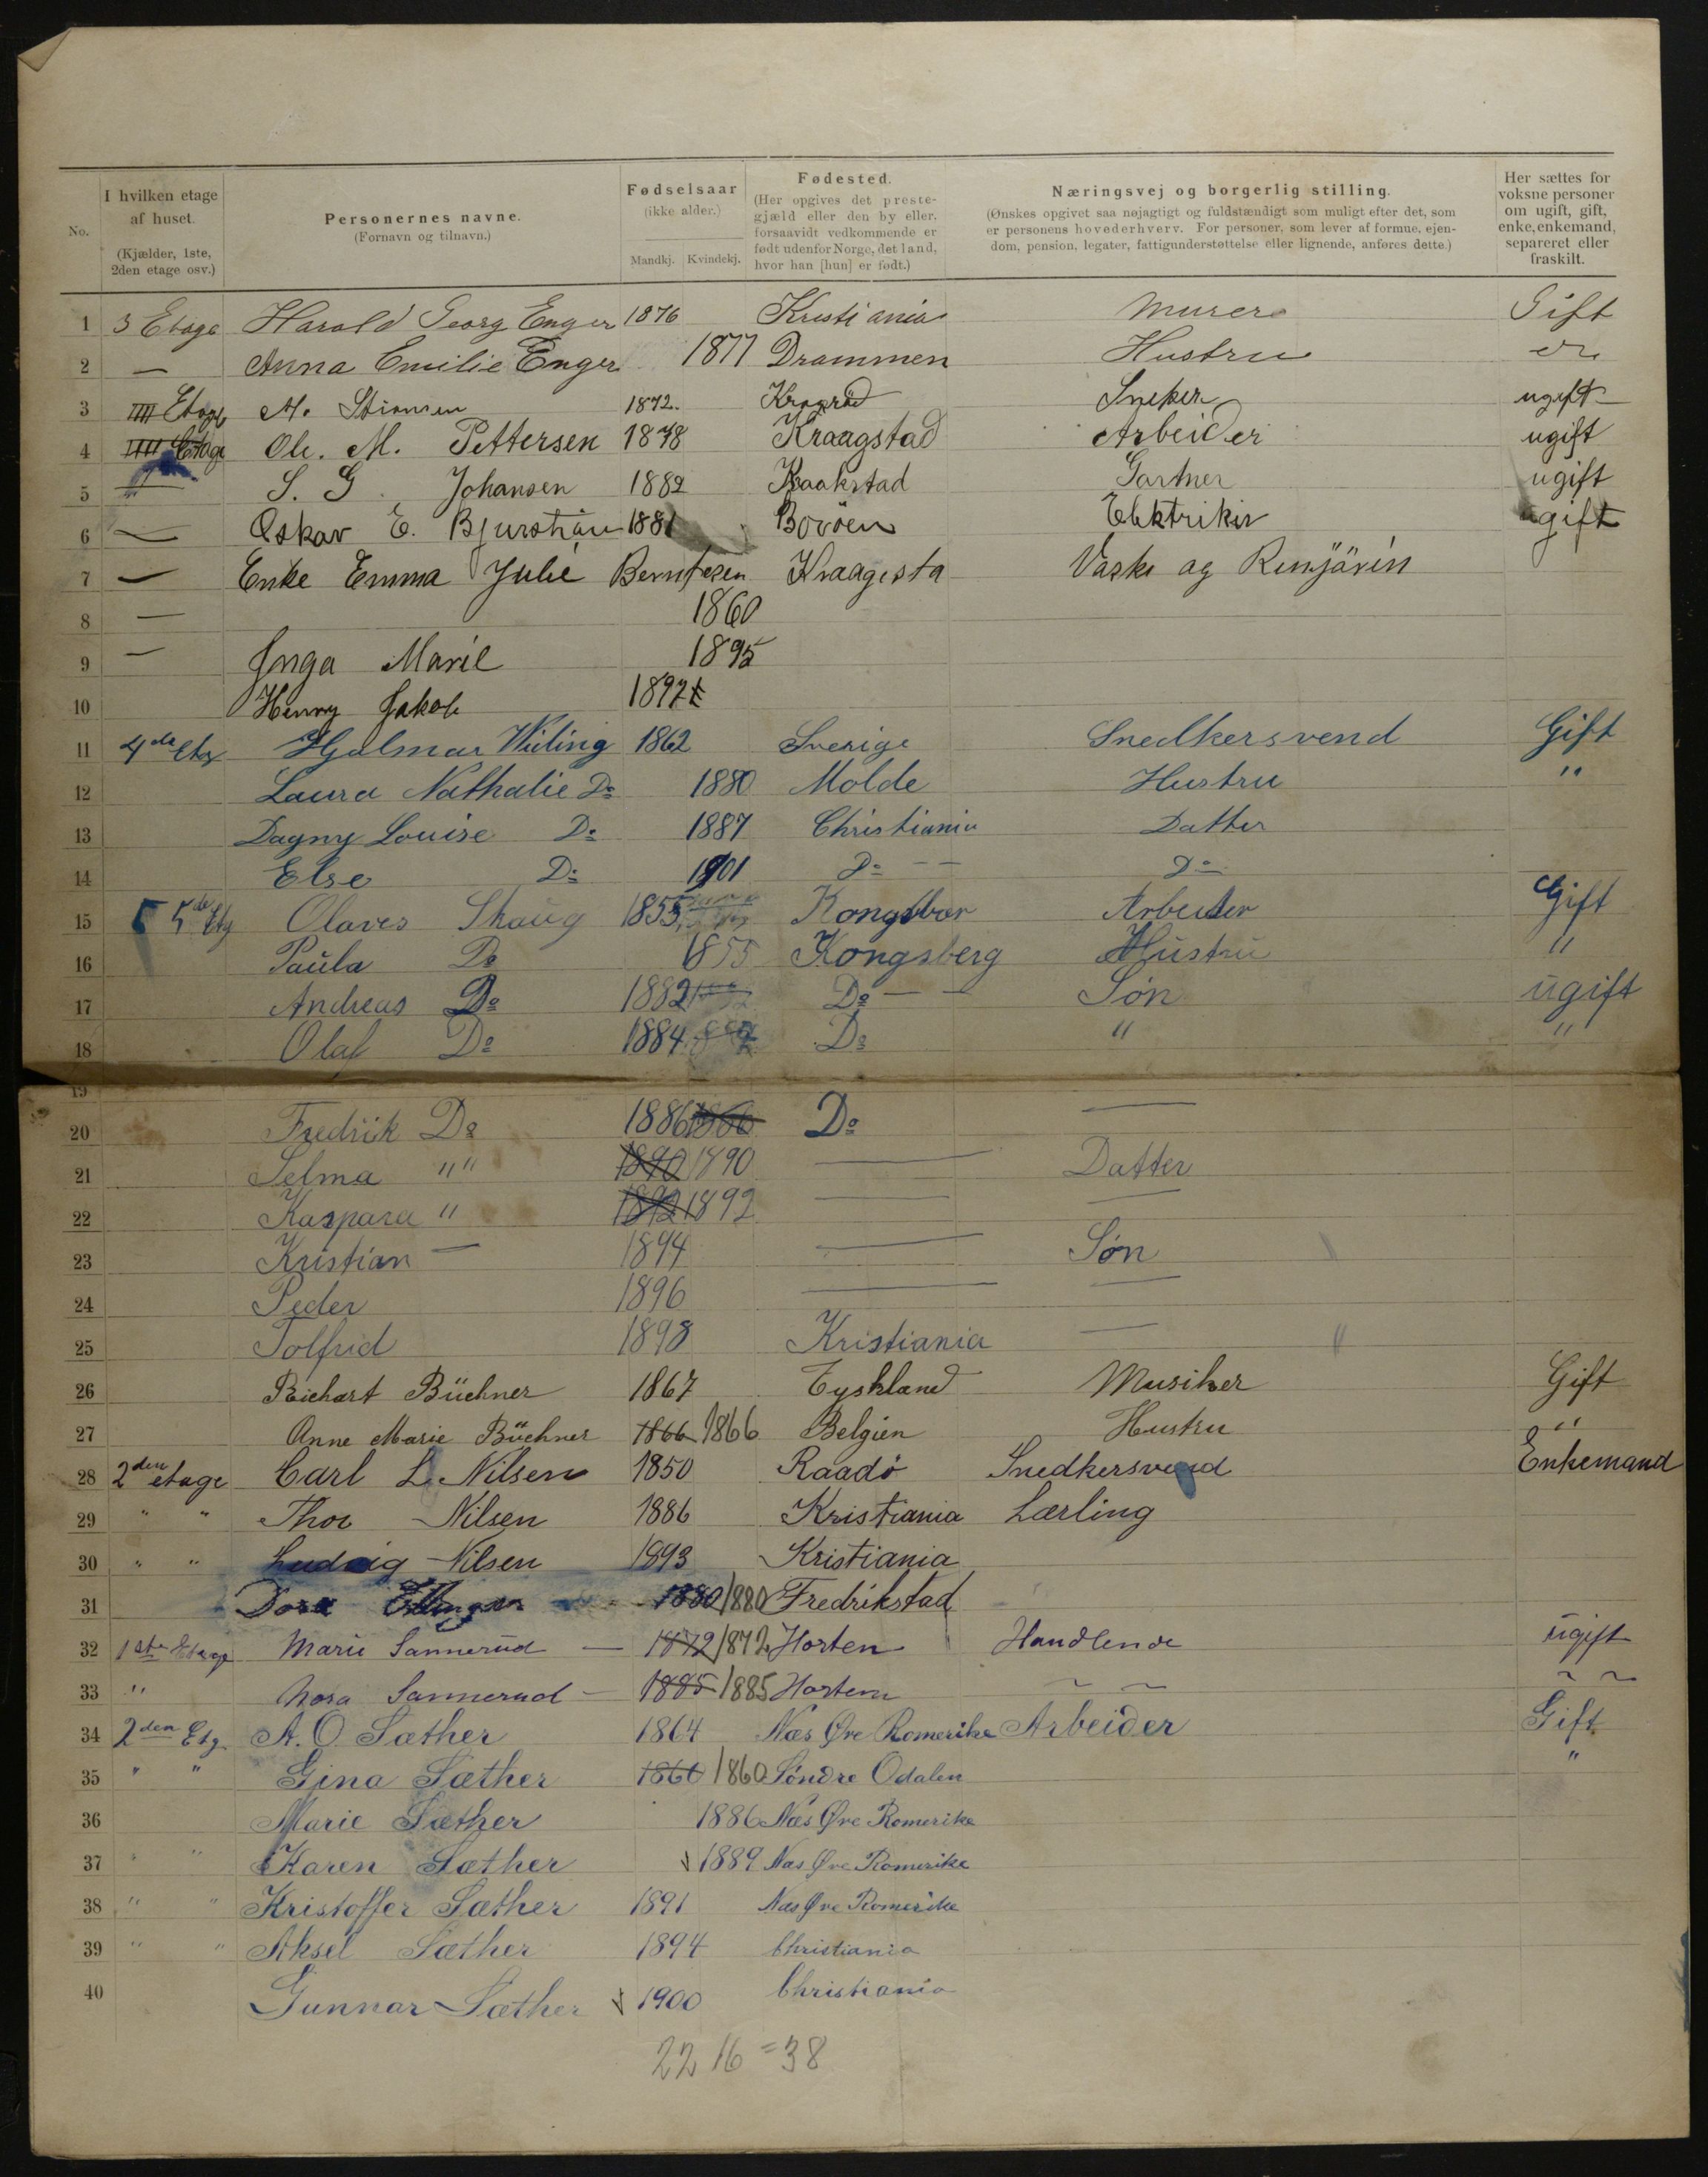 No.
I hvilken etage
af huset.
(Kjælder, 1ste,
2den etage osv.)
Personernes navne.
(Fornavn og tilnavn.)
Fødselsaar
(ikke alder.)
Mandkj. Kvindekj.
Fødested.
(Her opgives det preste-
gjæld eller den by eller,
forsaavidt vedkommende er
født udenfor Norge, det land,
hvor han [hun] er født.)
Næringsvej og borgerlig stilling.
(Ønskes opgivet saa nøjagtigt og fuldstændigt som muligt efter det, som
er personens hovederhverv. For personer, som lever af formue, ejen-
dom, pension, legater, fattigunderstøttelse eller lignende, anføres dette.)
Her sættes for
voksne personer
om ugift, gift,
enke, enkemand,
separeret eller
fraskilt.
1 3 Etage Harald Georg Enger 1876 Kristiania Murer Gift
2 — Anna Emilie Enger 1877 Drammen Hustru
3 IIII Etage M. 1872. Sneker ugift
4 IIII Etage Ole. M. Pettersen 1878 Kraagstad Arbeider ugift
5 S. G. Johansen 1882 Kraakstad Gartner ugift
6 — Oskar E. 1881 Elektriker ugift
7 — Enke Emma Julie Berntesen Kraagesta Vaske ag
8 — 1860
9 — Inga Marie 1895
10 Henry Jakob 1897
11 4de Etg Hjalmar 1862 Sverige Snedkersvend Gift
12 Laura Nathalie Do 1880 Molde Hustru "
13 Dagny Louise Do 1887 Christiania Datter
14 Else Do 1901 Do — — Do
15 5 5de Etg Olaves Skaug 1855 Kongsber Arbeider Gift
16 Paula Do 1855 Kongsberg Hustru "
17 Andreas Do 1882 Do — — Søn ugift
18 Olaf Do 1884 Do " "
19
20 Fredrik Do 1886 1886 Do —
21 Selma "" 1890 1890 — Datter
22 Kaspara " 1892 1892 — —
23 Kristian — 1894 — Søn
24 Peder 1896 — —
25 Solfrid 1898 Kristiania —
26 Richart Büchner 1867 Tyskland Musiker Gift
27 Anne Marie Büchner 1866 1866 Belgien Hustru "
28 2den etage Carl L. Nilsen 1850 Raadø Snedkersvend Enkemand
29 " " Thor Nilsen 1886 Kristiania Lærling
30 " " Ludvig Nilsen 1893 Kristiania
31 Dora 1880 1880 Fredrikstad
32 1ste Etage Marie Sannerud — 1872 1872 Horten Handlende ugift
33 " Nora Sannerud — 1885 1885 Horten ~ ~ ~ ~
34 2den Etg. A. O. Sæther 1864 Næs Øve Romerike Arbeider Gift
35 " " Gina Sæther 1860 1860 Søndre Odalen "
36 Marie Sæther 1886 Næs Øve Romerike
37 " " Karen Sæther 1889 Næs Øve Romerike
38 " " Kristoffer Sæther 1891 Næs Øve Romerike
39 " " Aksel Sæther 1894 Christiania
40 Gunnar Sæther 1900 Christiania
22 16 = 38